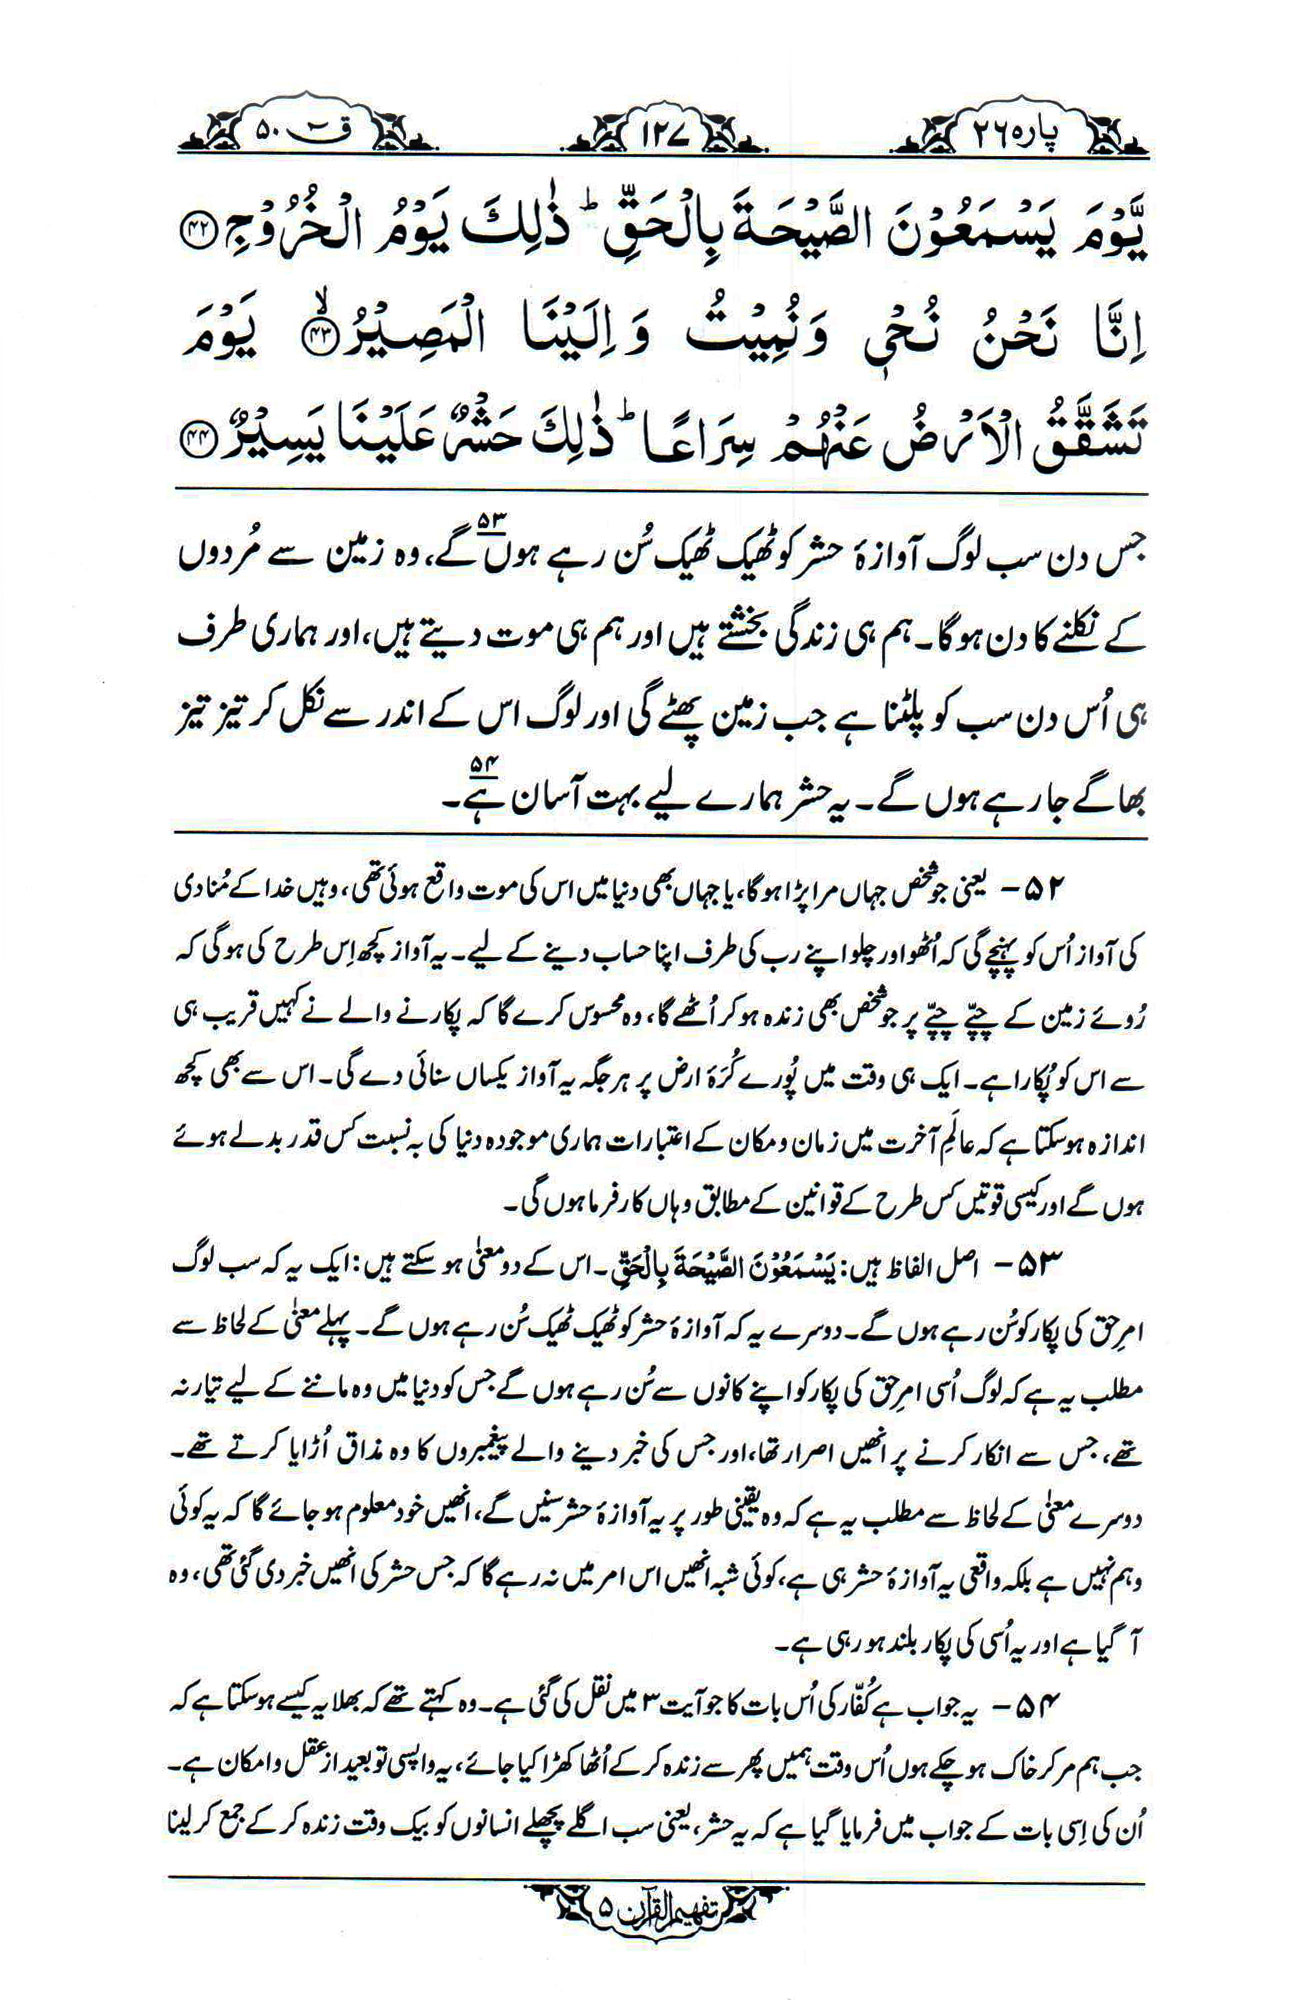 پارہ ۲۶
۱۲۷
قٓ ۵۰
یَّوْمَ یَسْمَعُوْنَ الصَّیْحَةَ بِالْحَقِّ ؕ ذٰلِكَ یَوْمُ الْخُرُوْجِ ﴿۴۲﴾
اِنَّا نَحْنُ نُحْیٖ وَنُمِیْتُ وَ اِلَیْنَا الْمَصِیْرُ ﴿۴۳﴾ۙ یَوْمَ
تَشَقَّقُ الْاَرْضُ عَنْهُمْ سِرَاعًا ؕ ذٰلِكَ حَشْرٌ عَلَیْنَا یَسِیْرٌ ﴿۴۴﴾
جس دن سب لوگ آوازۂ حشر کو ٹھیک ٹھیک سُن رہے ہوں ۵۳ گے، وہ زمین سے مُردوں
کے نکلنے کا دن ہوگا۔ ہم ہی زندگی بخشتے ہیں اور ہم ہی موت دیتے ہیں، اور ہماری طرف
ہی اُس دن سب کو پلٹنا ہے جب زمین پھٹے گی اور لوگ اس کے اندر سے نکل کر تیز تیز
بھاگے جا رہے ہوں گے۔ یہ حشر ہمارے لیے بہت آسان ہے ۵۴۔
۵۲ – یعنی جو شخص جہاں مرا پڑا ہوگا، یا جہاں بھی دنیا میں اس کی موت واقع ہوئی تھی، وہیں خدا کے مُنادی
کی آواز اُس کو پہنچے گی کہ اُٹھو اور چلو اپنے رب کی طرف اپنا حساب دینے کے لیے۔ یہ آواز کچھ اِس طرح کی ہوگی کہ
رُوئے زمین کے چپّے چپّے پر جو شخص بھی زندہ ہو کر اُٹھے گا، وہ محسوس کرے گا کہ پکارنے والے نے کہیں قریب ہی
سے اس کو پُکارا ہے۔ ایک ہی وقت میں پُورے کُرۂ ارض پر ہر جگہ یہ آواز یکساں سنائی دے گی۔ اس سے بھی کچھ
اندازہ ہو سکتا ہے کہ عالَمِ آخرت میں زمان و مکان کے اعتبارات ہماری موجودہ دنیا کی بہ نسبت کس قدر بدلے ہوئے
ہوں گے اور کیسی قوتیں کس طرح کے قوانین کے مطابق وہاں کارفرما ہوں گی۔
۵۳ – اصل الفاظ ہیں: یَسْمَعُوْنَ الصَّیْحَةَ بِالْحَقِّ۔ اس کے دو معنیٰ ہو سکتے ہیں: ایک یہ کہ سب لوگ
امرِ حق کی پکار کو سُن رہے ہوں گے۔ دوسرے یہ کہ آوازۂ حشر کو ٹھیک ٹھیک سُن رہے ہوں گے۔ پہلے معنیٰ کے لحاظ سے
مطلب یہ ہے کہ لوگ اُسی امرِ حق کی پکار کو اپنے کانوں سے سُن رہے ہوں گے جس کو دنیا میں وہ ماننے کے لیے تیار نہ
تھے، جس سے انکار کرنے پر انھیں اصرار تھا، اور جس کی خبر دینے والے پیغمبروں کا وہ مذاق اُڑایا کرتے تھے۔
دوسرے معنیٰ کے لحاظ سے مطلب یہ ہے کہ وہ یقینی طور پر یہ آوازۂ حشر سنیں گے، انھیں خود معلوم ہو جائے گا کہ یہ کوئی
وہم نہیں ہے بلکہ واقعی یہ آوازۂ حشر ہی ہے، کوئی شبہ انھیں اس امر میں نہ رہے گا کہ جس حشر کی انھیں خبر دی گئی تھی، وہ
آ گیا ہے اور یہ اُسی کی پکار بلند ہو رہی ہے۔
۵۴ – یہ جواب ہے کُفّار کی اُس بات کا جو آیت ۳ میں نقل کی گئی ہے۔ وہ کہتے تھے کہ بھلا یہ کیسے ہو سکتا ہے کہ
جب ہم مر کر خاک ہو چکے ہوں اُس وقت ہمیں پھر سے زندہ کر کے اُٹھا کھڑا کیا جائے، یہ واپسی تو بعید از عقل و امکان ہے۔
اُن کی اِسی بات کے جواب میں فرمایا گیا ہے کہ یہ حشر، یعنی سب اگلے پچھلے انسانوں کو بیک وقت زندہ کر کے جمع کر لینا
تفہیم القرآن ۵